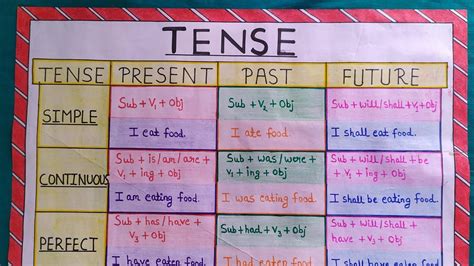 TENSE
TENSE PRESENT PAST FUTURE
SIMPLE
Sub + V₁ + Obj
I eat food.
Sub + V₂ + Obj
I ate food.
Sub + will/shall + V₁ + Obj
I shall eat food.
CONTINUOUS
Sub + is/am/are +
V₁ + ing + Obj
I am eating food.
Sub + was/were +
V₁ + ing + Obj
I was eating food.
Sub + will/shall + be
+ V₁ + ing + Obj
I shall be eating food.
PERFECT
Sub + has/have +
V₃ + Obj
I have eaten food.
Sub + had + V₃ + Obj
I had eaten food.
Sub + will/shall +
have + V₃ + Obj
I shall have eaten food.